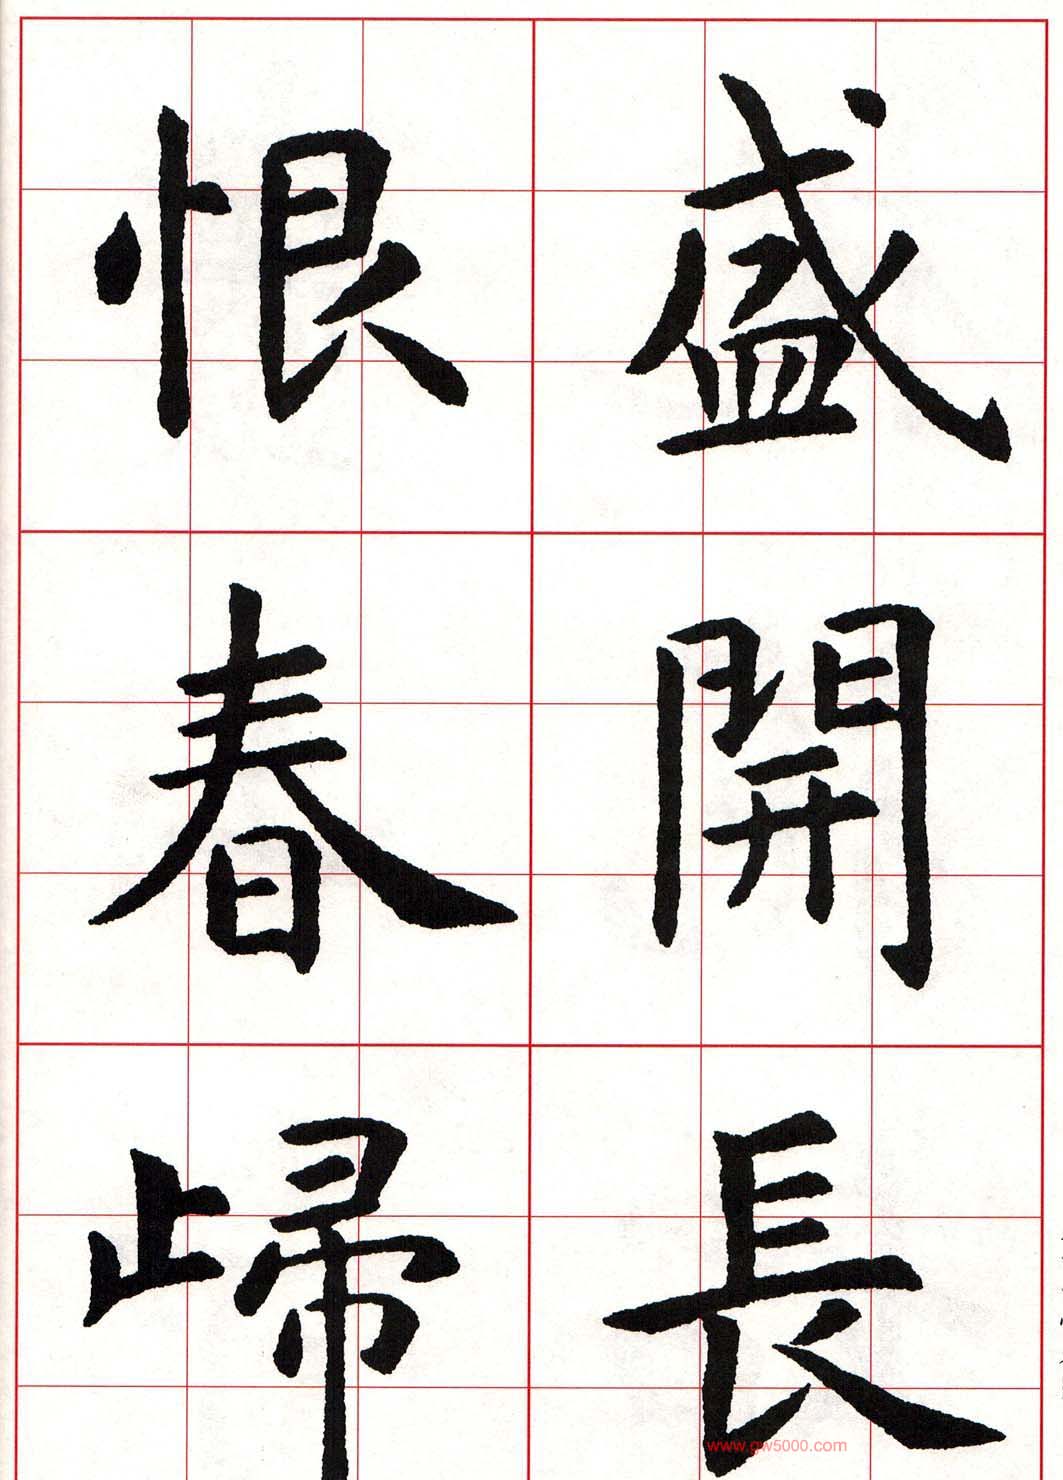 盛開長
恨春歸
www.gw5000.com